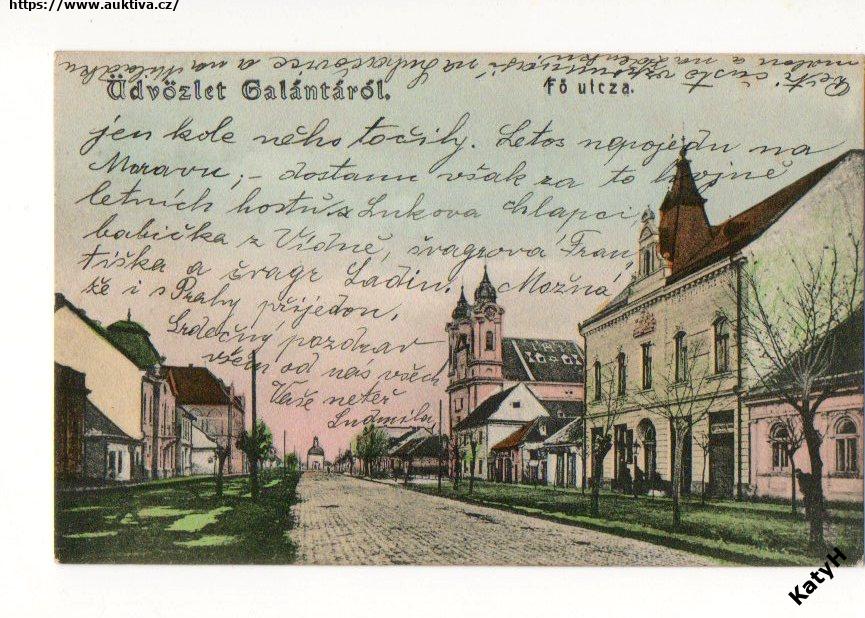 https://www.auktiva.cz/
Üdvözlet Galántáról.
Fő utcza.
jen kole něho točily. Letos nepojedu na
Moravu; – dostanu však za to hojně
letních hostů z Lukova chlapci
babička z Vídně, švagrová Fran
tiška a švagr Ladin. Možná
že i s Prahy přijedou.
Srdečný pozdrav
všem od nás všech
Vaše neteř
Ludmila
KatyH